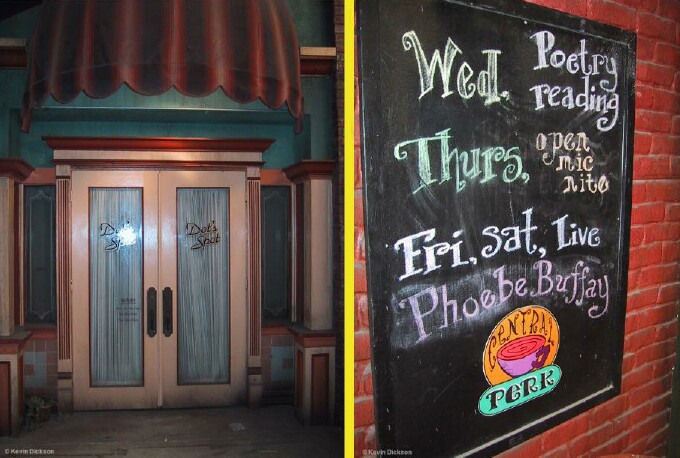 Dot's
Spot
Dot's
Spot
© Kevin Dickson
Wed. Poetry
reading
Thurs, open
mic
nite
Fri, sat, Live
Phoebe Buffay
CENTRAL
PERK
© Kevin Dickson